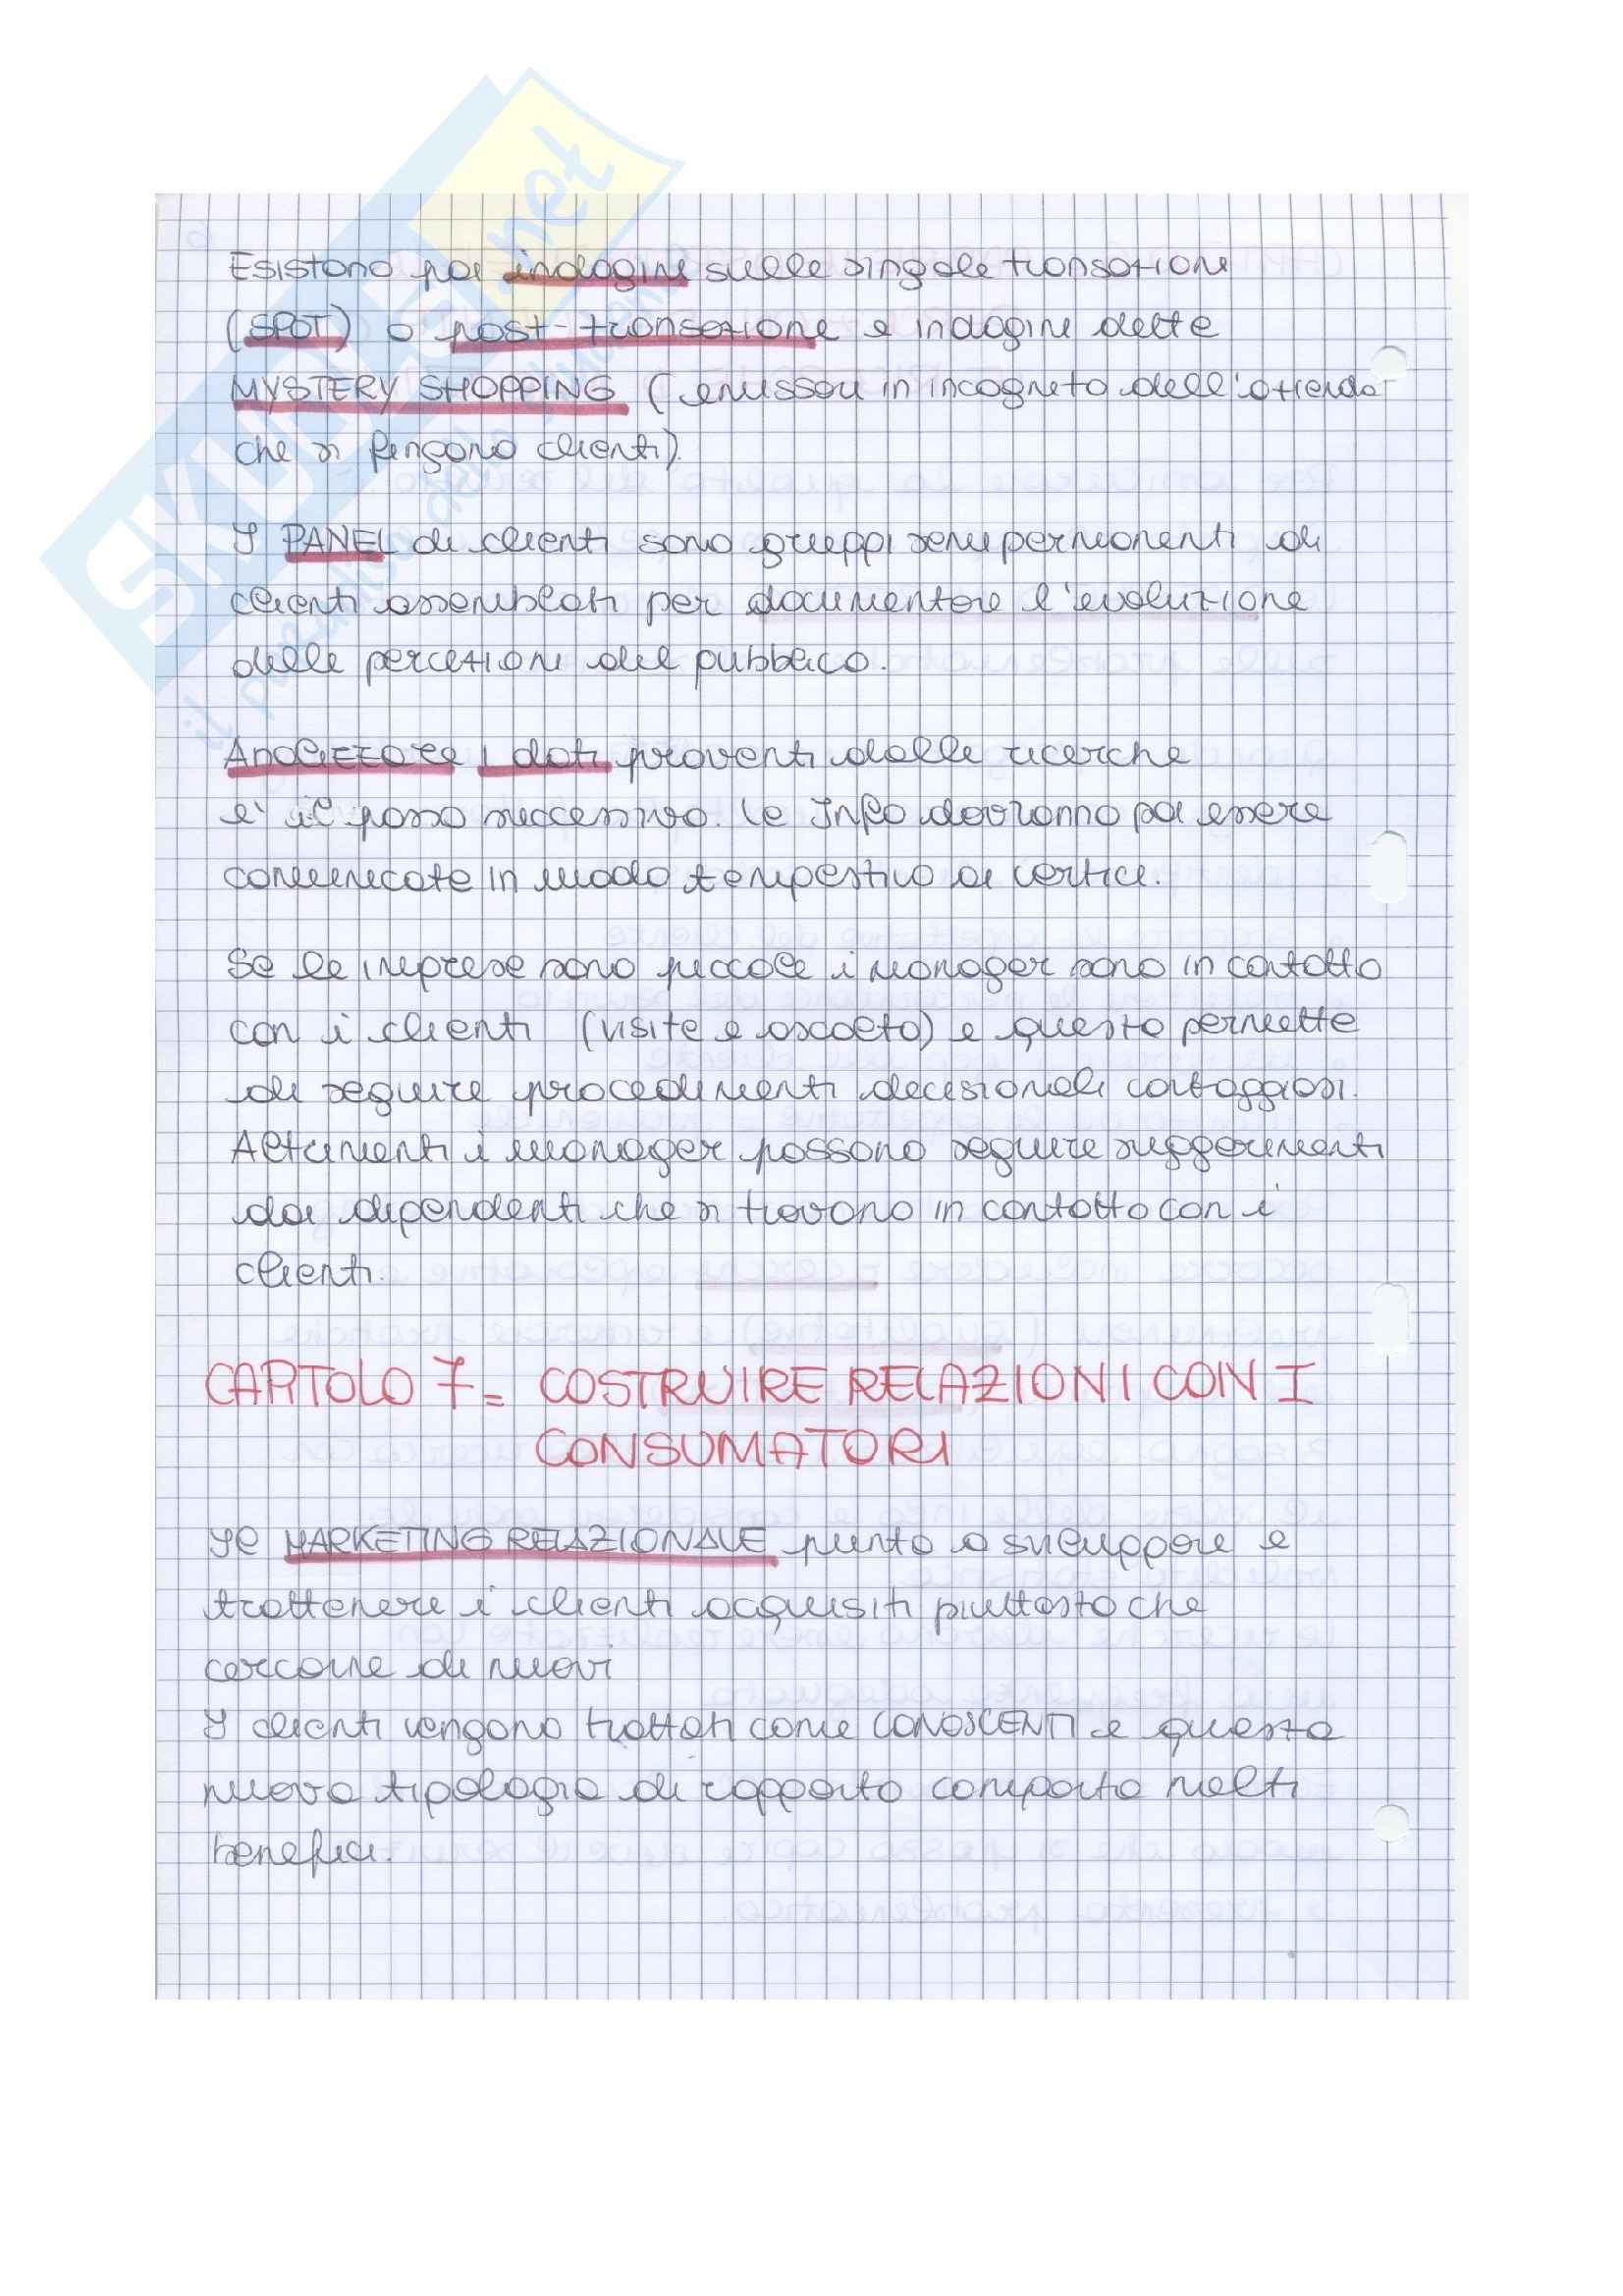 SKUOLA.net
Esistono poi indagini sulle singole transazioni
(SPOT) o post-transazione e indagini dette
MYSTERY SHOPPING (emissari in incognito dell'azienda
che si fingono clienti).
I PANEL di clienti sono gruppi semipermanenti di
clienti assemblati per documentare l'evoluzione
delle percezioni del pubblico.
Analizzare i dati proventi dalle ricerche
e' il passo successivo. Le Info dovranno poi essere
comunicate in modo tempestivo ai vertici.
Se le imprese sono piccole i manager sono in contatto
con i clienti (visite e ascolto) e questo permette
di seguire procedimenti decisionali vantaggiosi.
Altrimenti i manager possono seguire suggerimenti
dai dipendenti che si trovano in contatto con i
clienti.
CAPITOLO 7 = COSTRUIRE RELAZIONI CON I
CONSUMATORI
Il MARKETING RELAZIONALE punta a sviluppare e
trattenere i clienti acquisiti piuttosto che
cercarne di nuovi
I clienti vengono trattati come CONOSCENTI e questa
nuova tipologia di rapporto comporta molti
benefici.